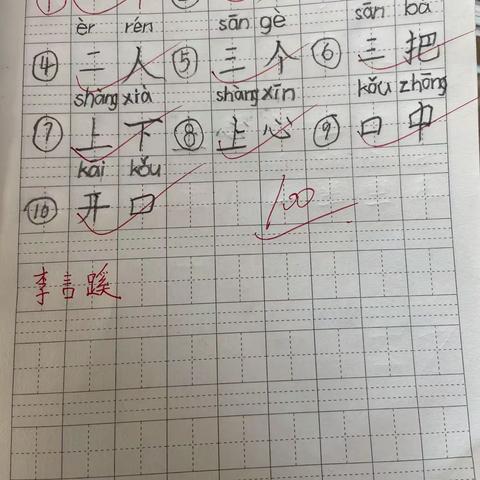 èr rén sān gè sān bǎ
④ 二人 ⑤ 三个 ⑥ 三把
shàng xià shàng xīn kǒu zhōng
⑦ 上下 ⑧ 上心 ⑨ 口中
kāi kǒu
⑩ 开口
100
李言蹊